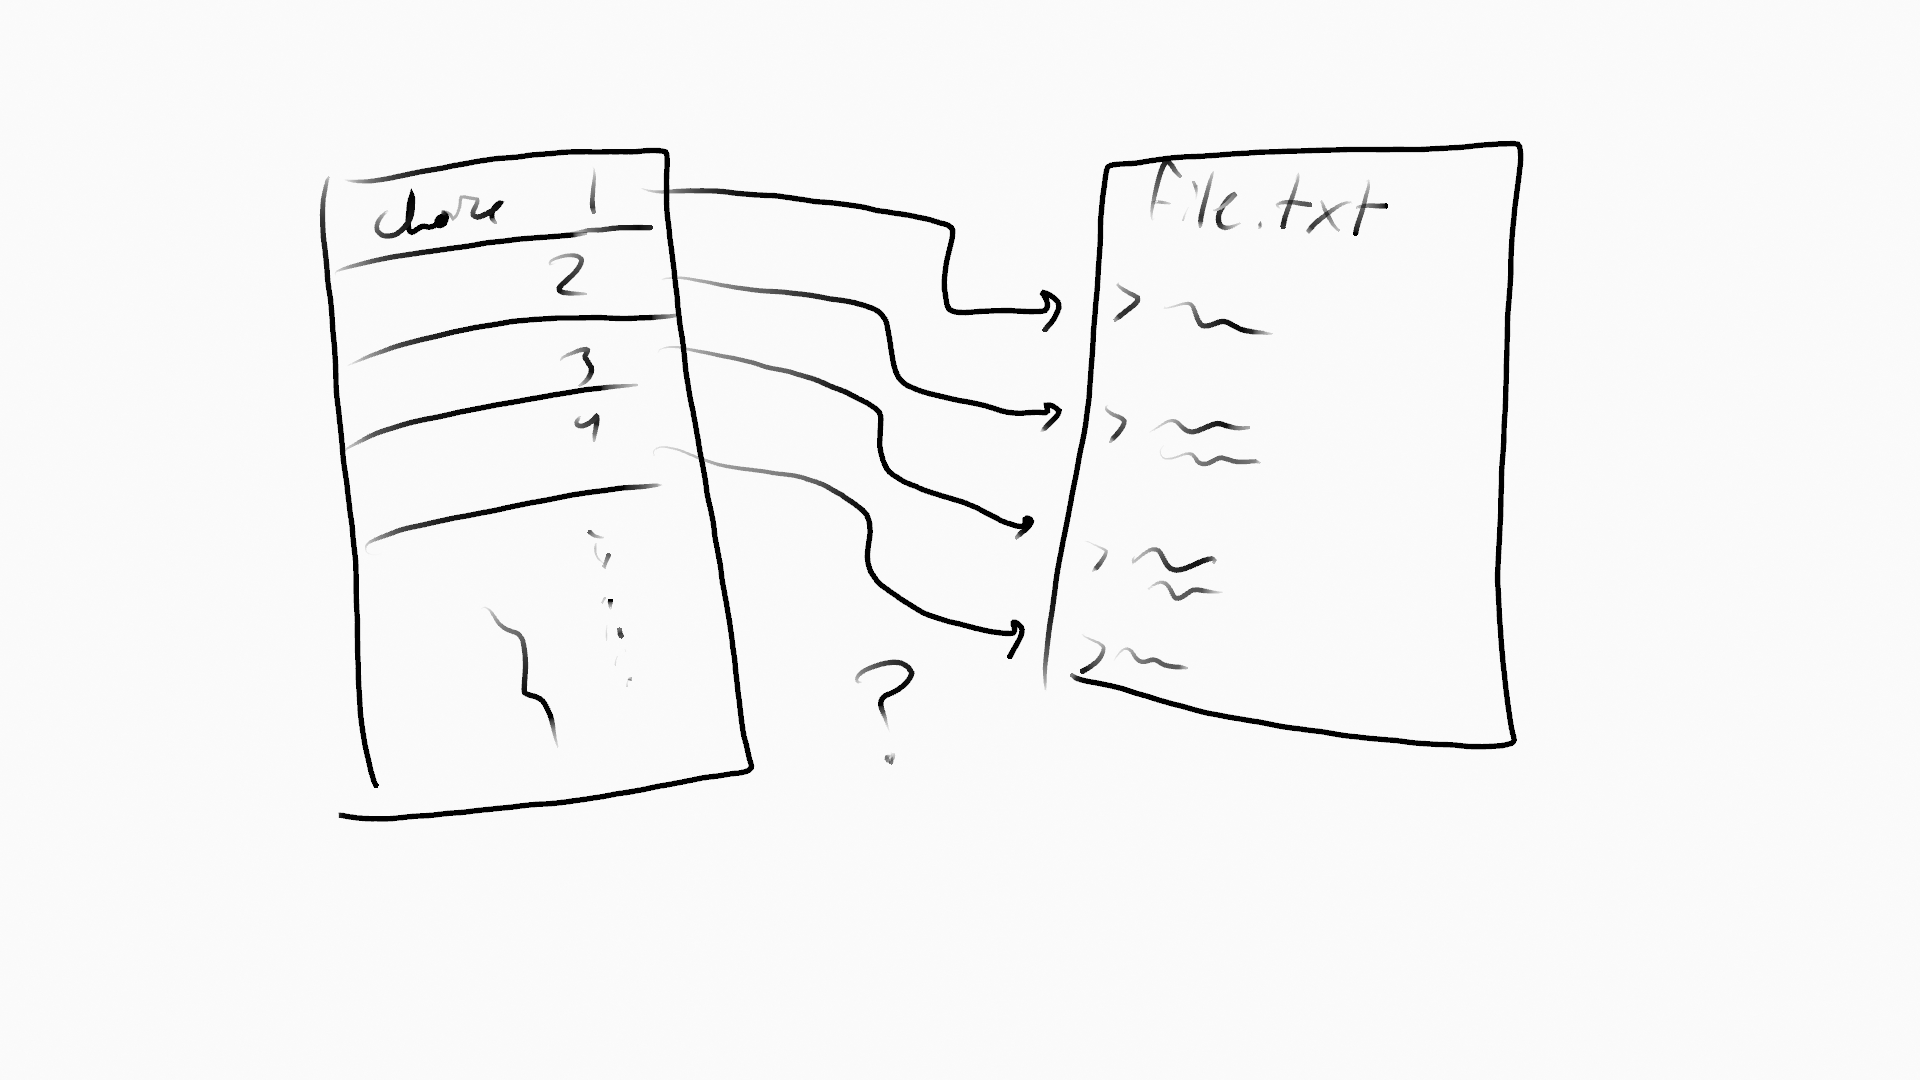 chore 1
2
3
4
?
file.txt
>
>
>
>